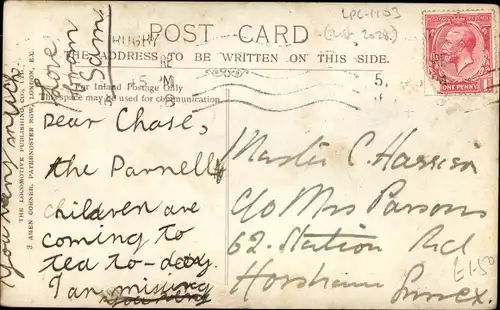 POST CARD
LPC-1103
THE ADDRESS TO BE WRITTEN ON THIS SIDE.
RUGBY
For Inland Postage Only
This space may be used for communication
ONE PENNY
THE LOCOMOTIVE PUBLISHING CO., LTD.,
3 AMEN CORNER, PATERNOSTER ROW, LONDON, E.C.
Dear Chase,
the Parnell
children are
coming to
tea to-day.
I am missing
you very
you very much
love
from
Sam
Master C. Harrison
C/O Mrs Parsons
62. Station Rd
Horsham
Sussex.
£1.50